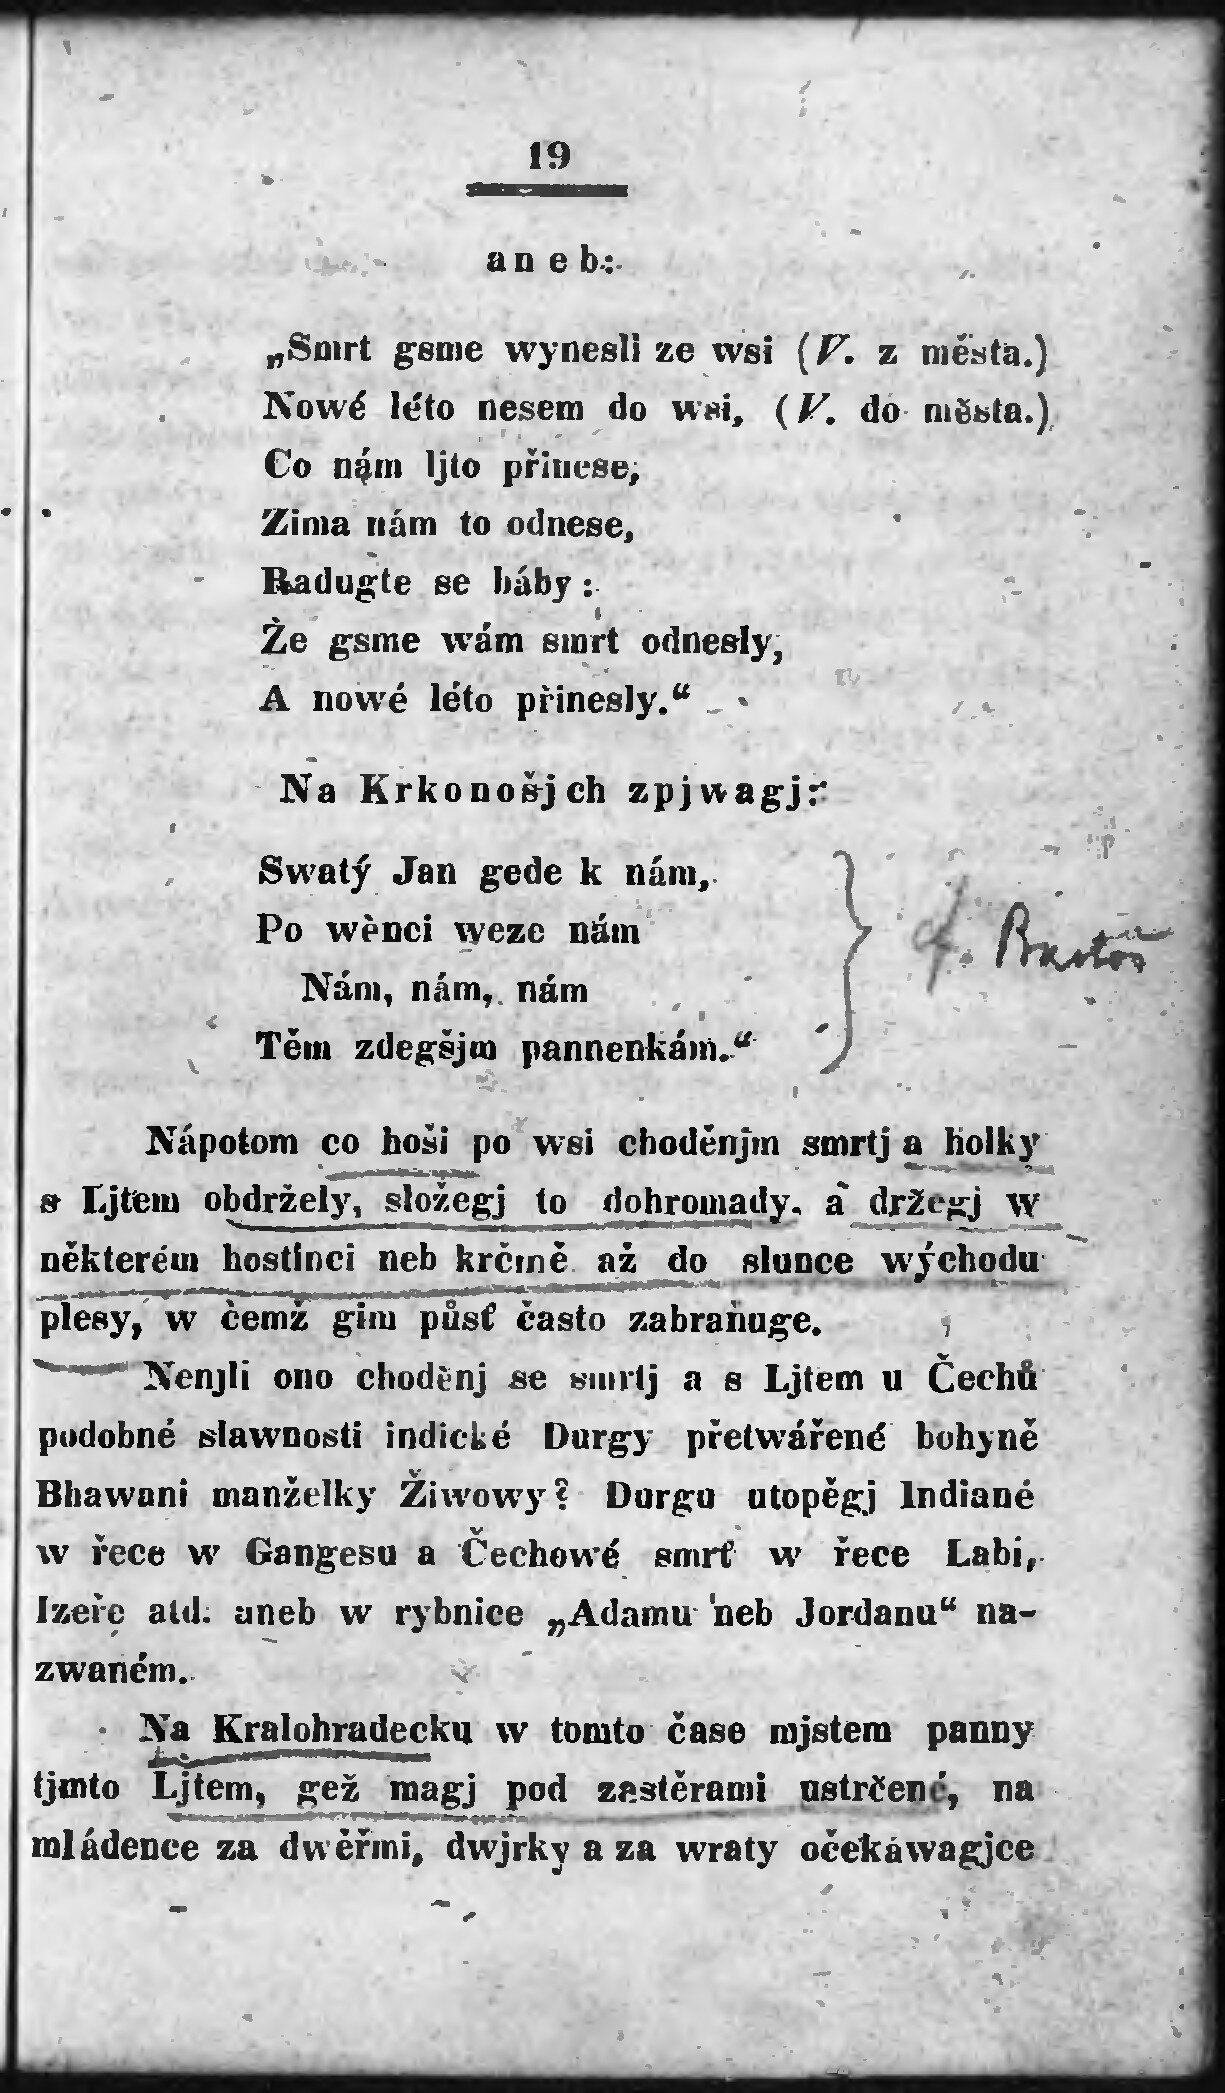 19
aneb:
„Smrt gsme wynesli ze wsi (V. z města.)
Nowé léto nesem do wsi, (V. do města.)
Co nám ljto přinese,
Zima nám to odnese,
Radugte se báby:
Že gsme wám smrt odnesly,
A nowé léto přinesly.“
Na Krkonošjch zpjwagj:
Swatý Jan gede k nám,
Po wěnci weze nám
Nám, nám, nám
Těm zdegšjm pannenkám.“
Bartoš
Nápotom co hoši po wsi choděnjm smrtj a holky
s Ljtem obdržely, složegj to dohromady, a držegj w
některém hostinci neb krčmě až do slunce východu
plesy, w čemž gim půsť často zabraňuge.
Nenjli ono choděnj se smrtj a s Ljtem u Čechů
podobné slawnosti indické Durgy přetwářené bohyně
Bhawani manželky Žiwowy? Durgu utopěgj Indiané
w řece w Gangesu a Čechowé smrť w řece Labi,
Izeře atd. aneb w rybnice „Adamu neb Jordanu“ na-
zwaném.
Na Kralohradecku w tomto čase mjstem panny
tjmto Ljtem, gež magj pod zastěrami ustrčené, na
mládence za dwěřmi, dwjrky a za wraty očekáwagjce